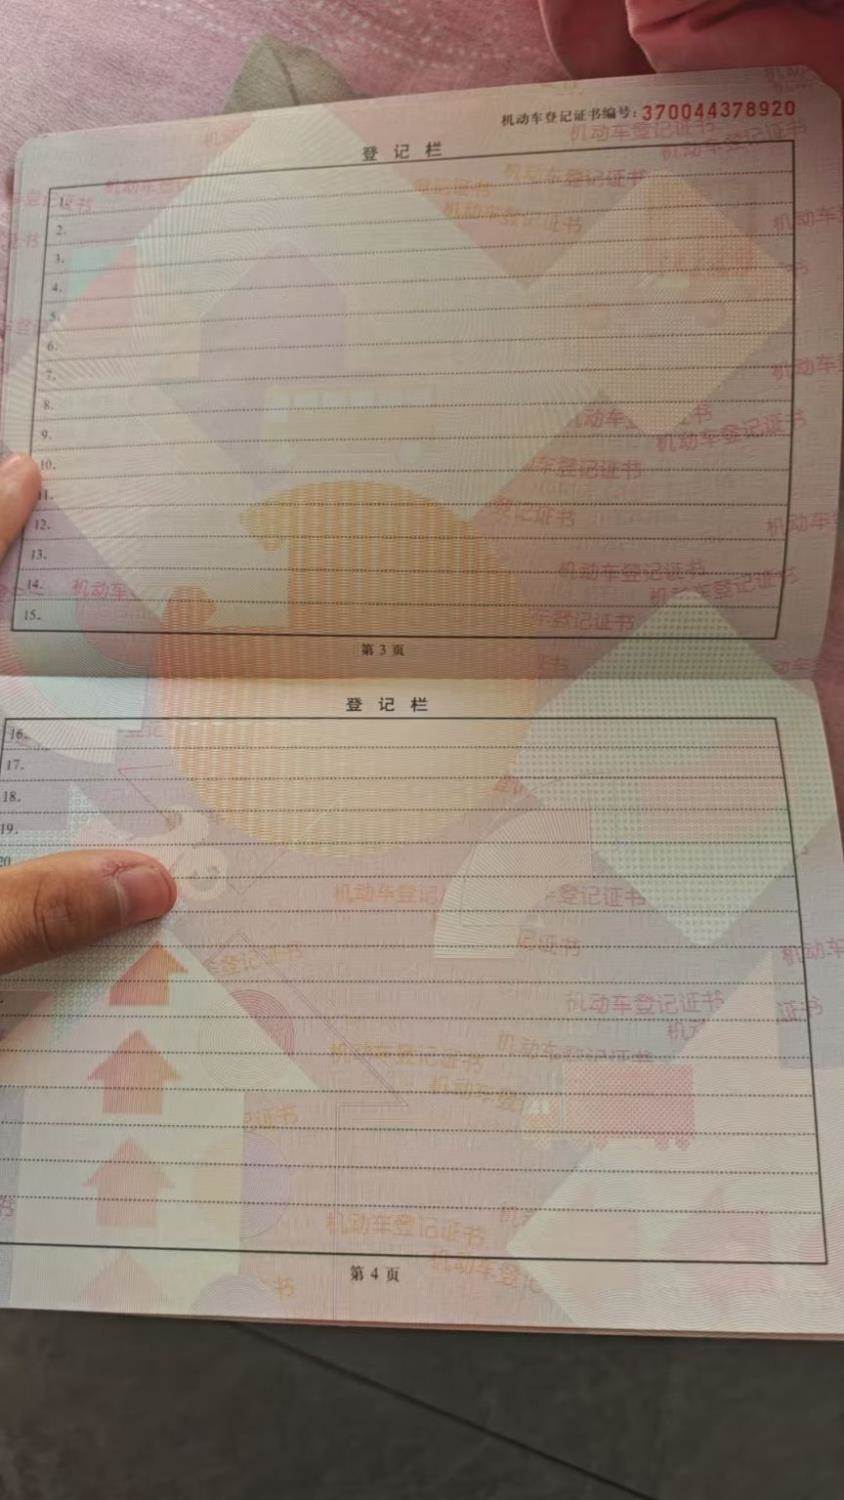 机动车登记证书编号:370044378920
登 记 栏
1.
2.
3.
4.
5.
6.
7.
8.
9.
10.
11.
12.
13.
14.
15.
第 3 页
登 记 栏
16.
17.
18.
19.
20
第 4 页